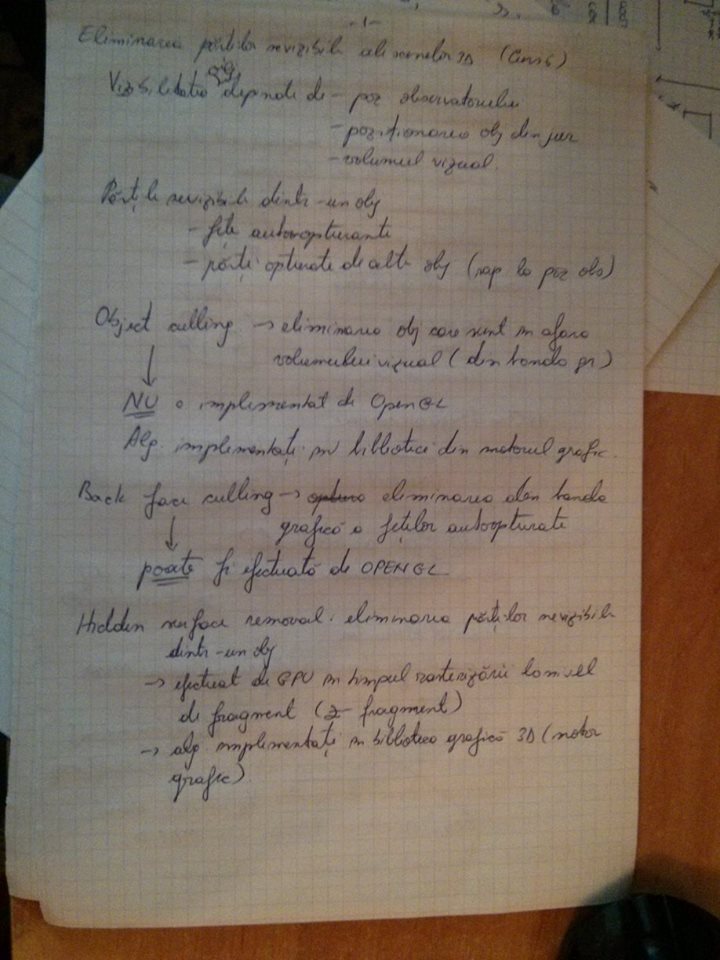 -1-
Eliminarea părților nevizibile ale scenelor 3D (Curs 6)
Vizibilitatea obj depinde de - poz observatorului
- poziționarea obj din jur
- volumul vizual.
Părțile nevizibile dintr-un obj
- fețe autoopturante
- părți opturate de alte obj (rap la poz obs)
Object culling → eliminarea obj care sunt în afara
volumului vizual (din banda gr)
NU e implementat de OpenGL
Alg. implementați în biblioteci din motorul grafic.
Back face culling → eliminarea din banda
grafică a fețelor autoopturate
poate fi efectuată de OPENGL
Hidden surface removal: eliminarea părților nevizibile
dintr-un obj
→ efectuat de GPU în timpul rasterizării la nivel
de fragment (z-fragment)
→ alg implementați în biblioteca grafică 3D (motor
grafic).